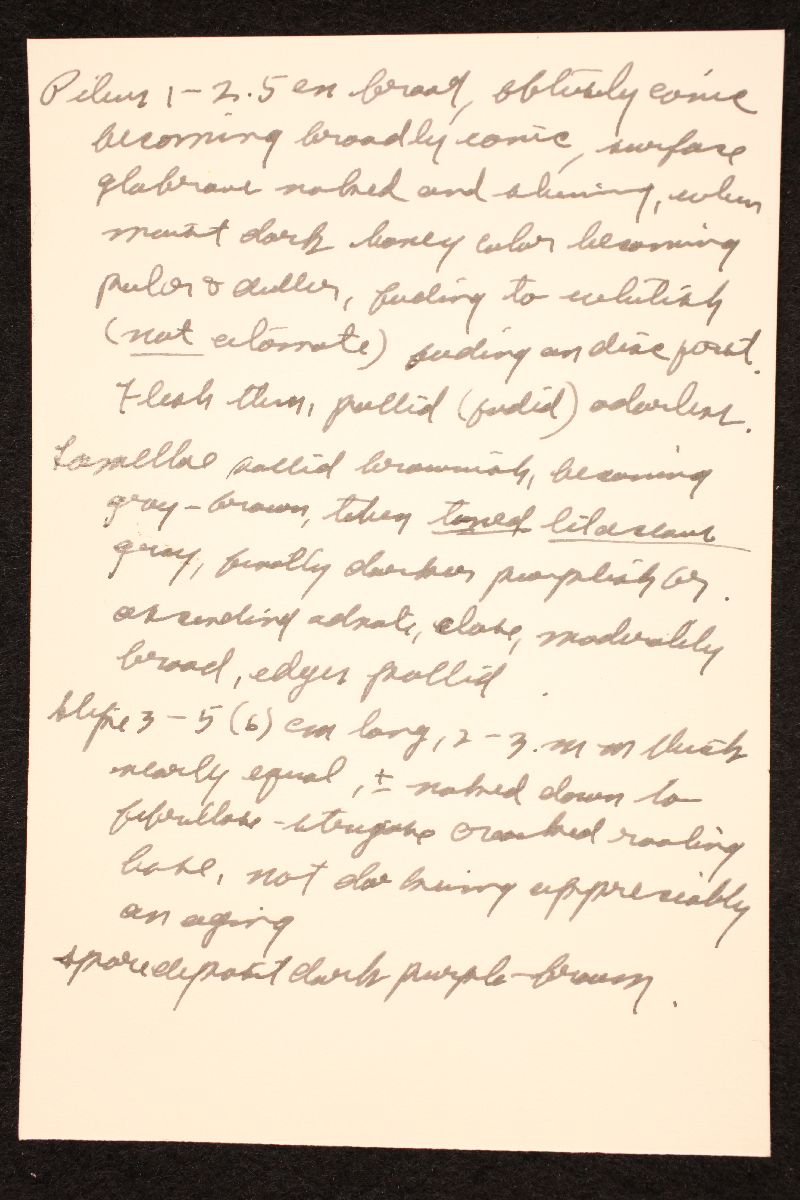 Pileus 1-2.5 cm broad, obtusely conic
becoming broadly conic, surface
glabrous naked and shining, when
moist dark honey color becoming
paler & duller, fading to whitish
(not atomate) fading on disc first.
Flesh thin, pallid (faded) odorless.
Lamellae pallid brownish, becoming
gray-brown, then toned lilaceous
gray, finally darker purplish br.
ascending adnate, close, moderately
broad, edges pallid.
Stipe 3-5 (6) cm long, 2-3 mm thick
nearly equal, ± naked down to
fibrillose-strigose crooked rooting
base, not darkening appreciably
on aging
spore deposit dark purple-brown.